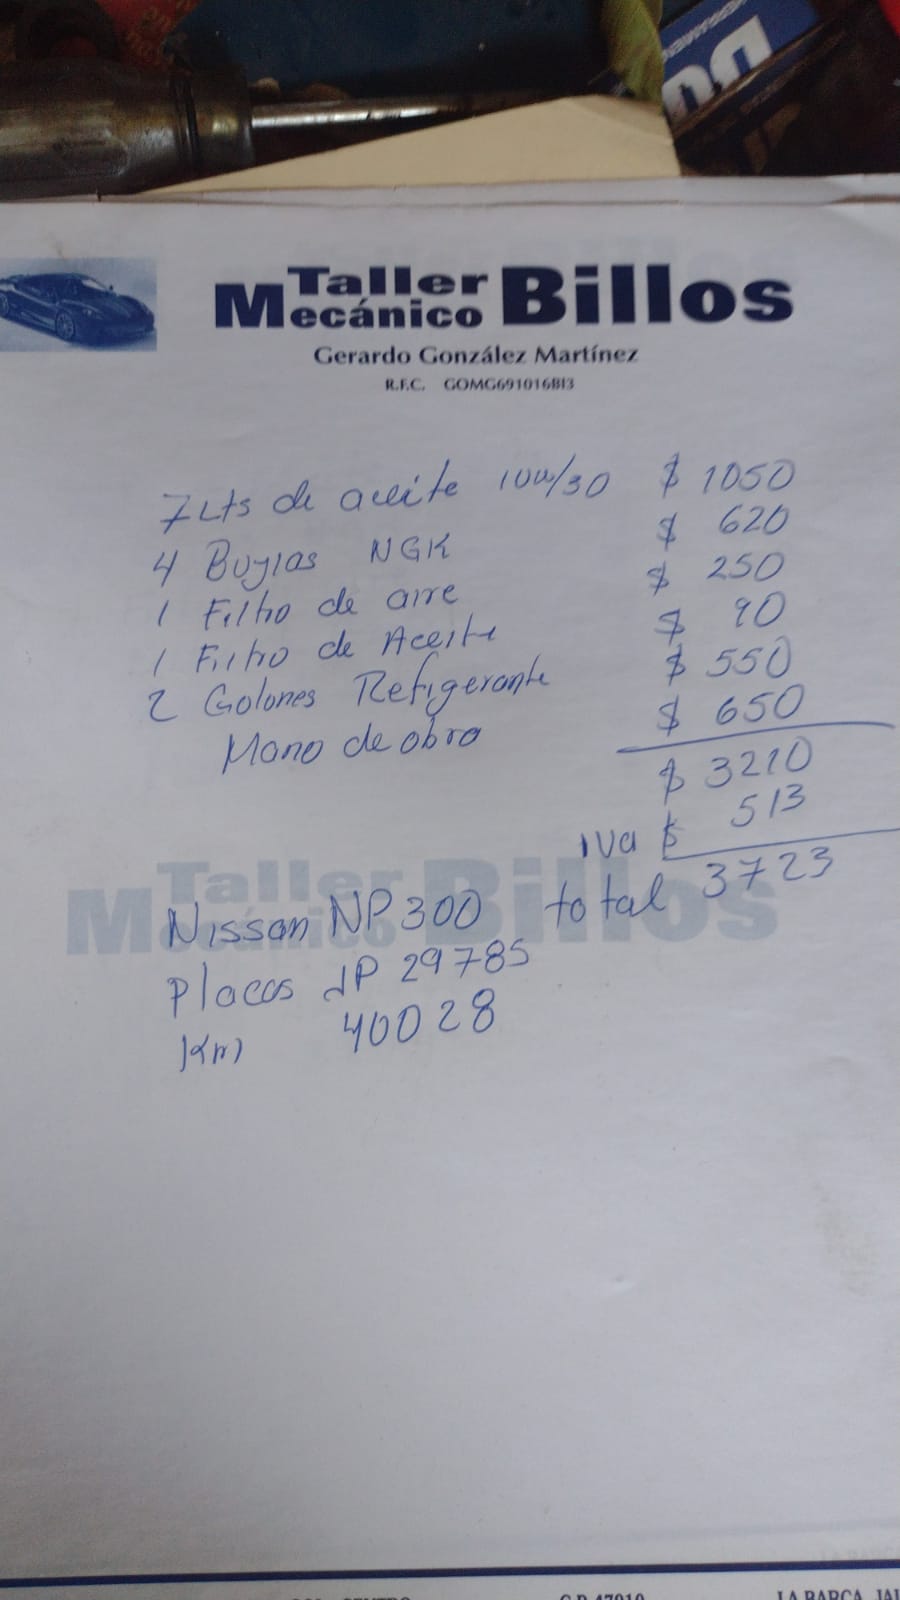 Taller
Mecánico Billos
Gerardo González Martínez
R.F.C. GOMG691016BI3
7 Lts de aceite 10w/30 $ 1050
4 Bujias NGK $ 620
1 Filtro de aire $ 250
1 Filtro de Aceite $ 90
2 Galones Refigerante $ 550
Mano de obra $ 650
$ 3210
iva $ 513
total 3723
Taller
Mecánico Billos
Nissan NP300
Placas JP 29785
Km 40028
CENTRO C.P. 47910 LA BARCA, JAL